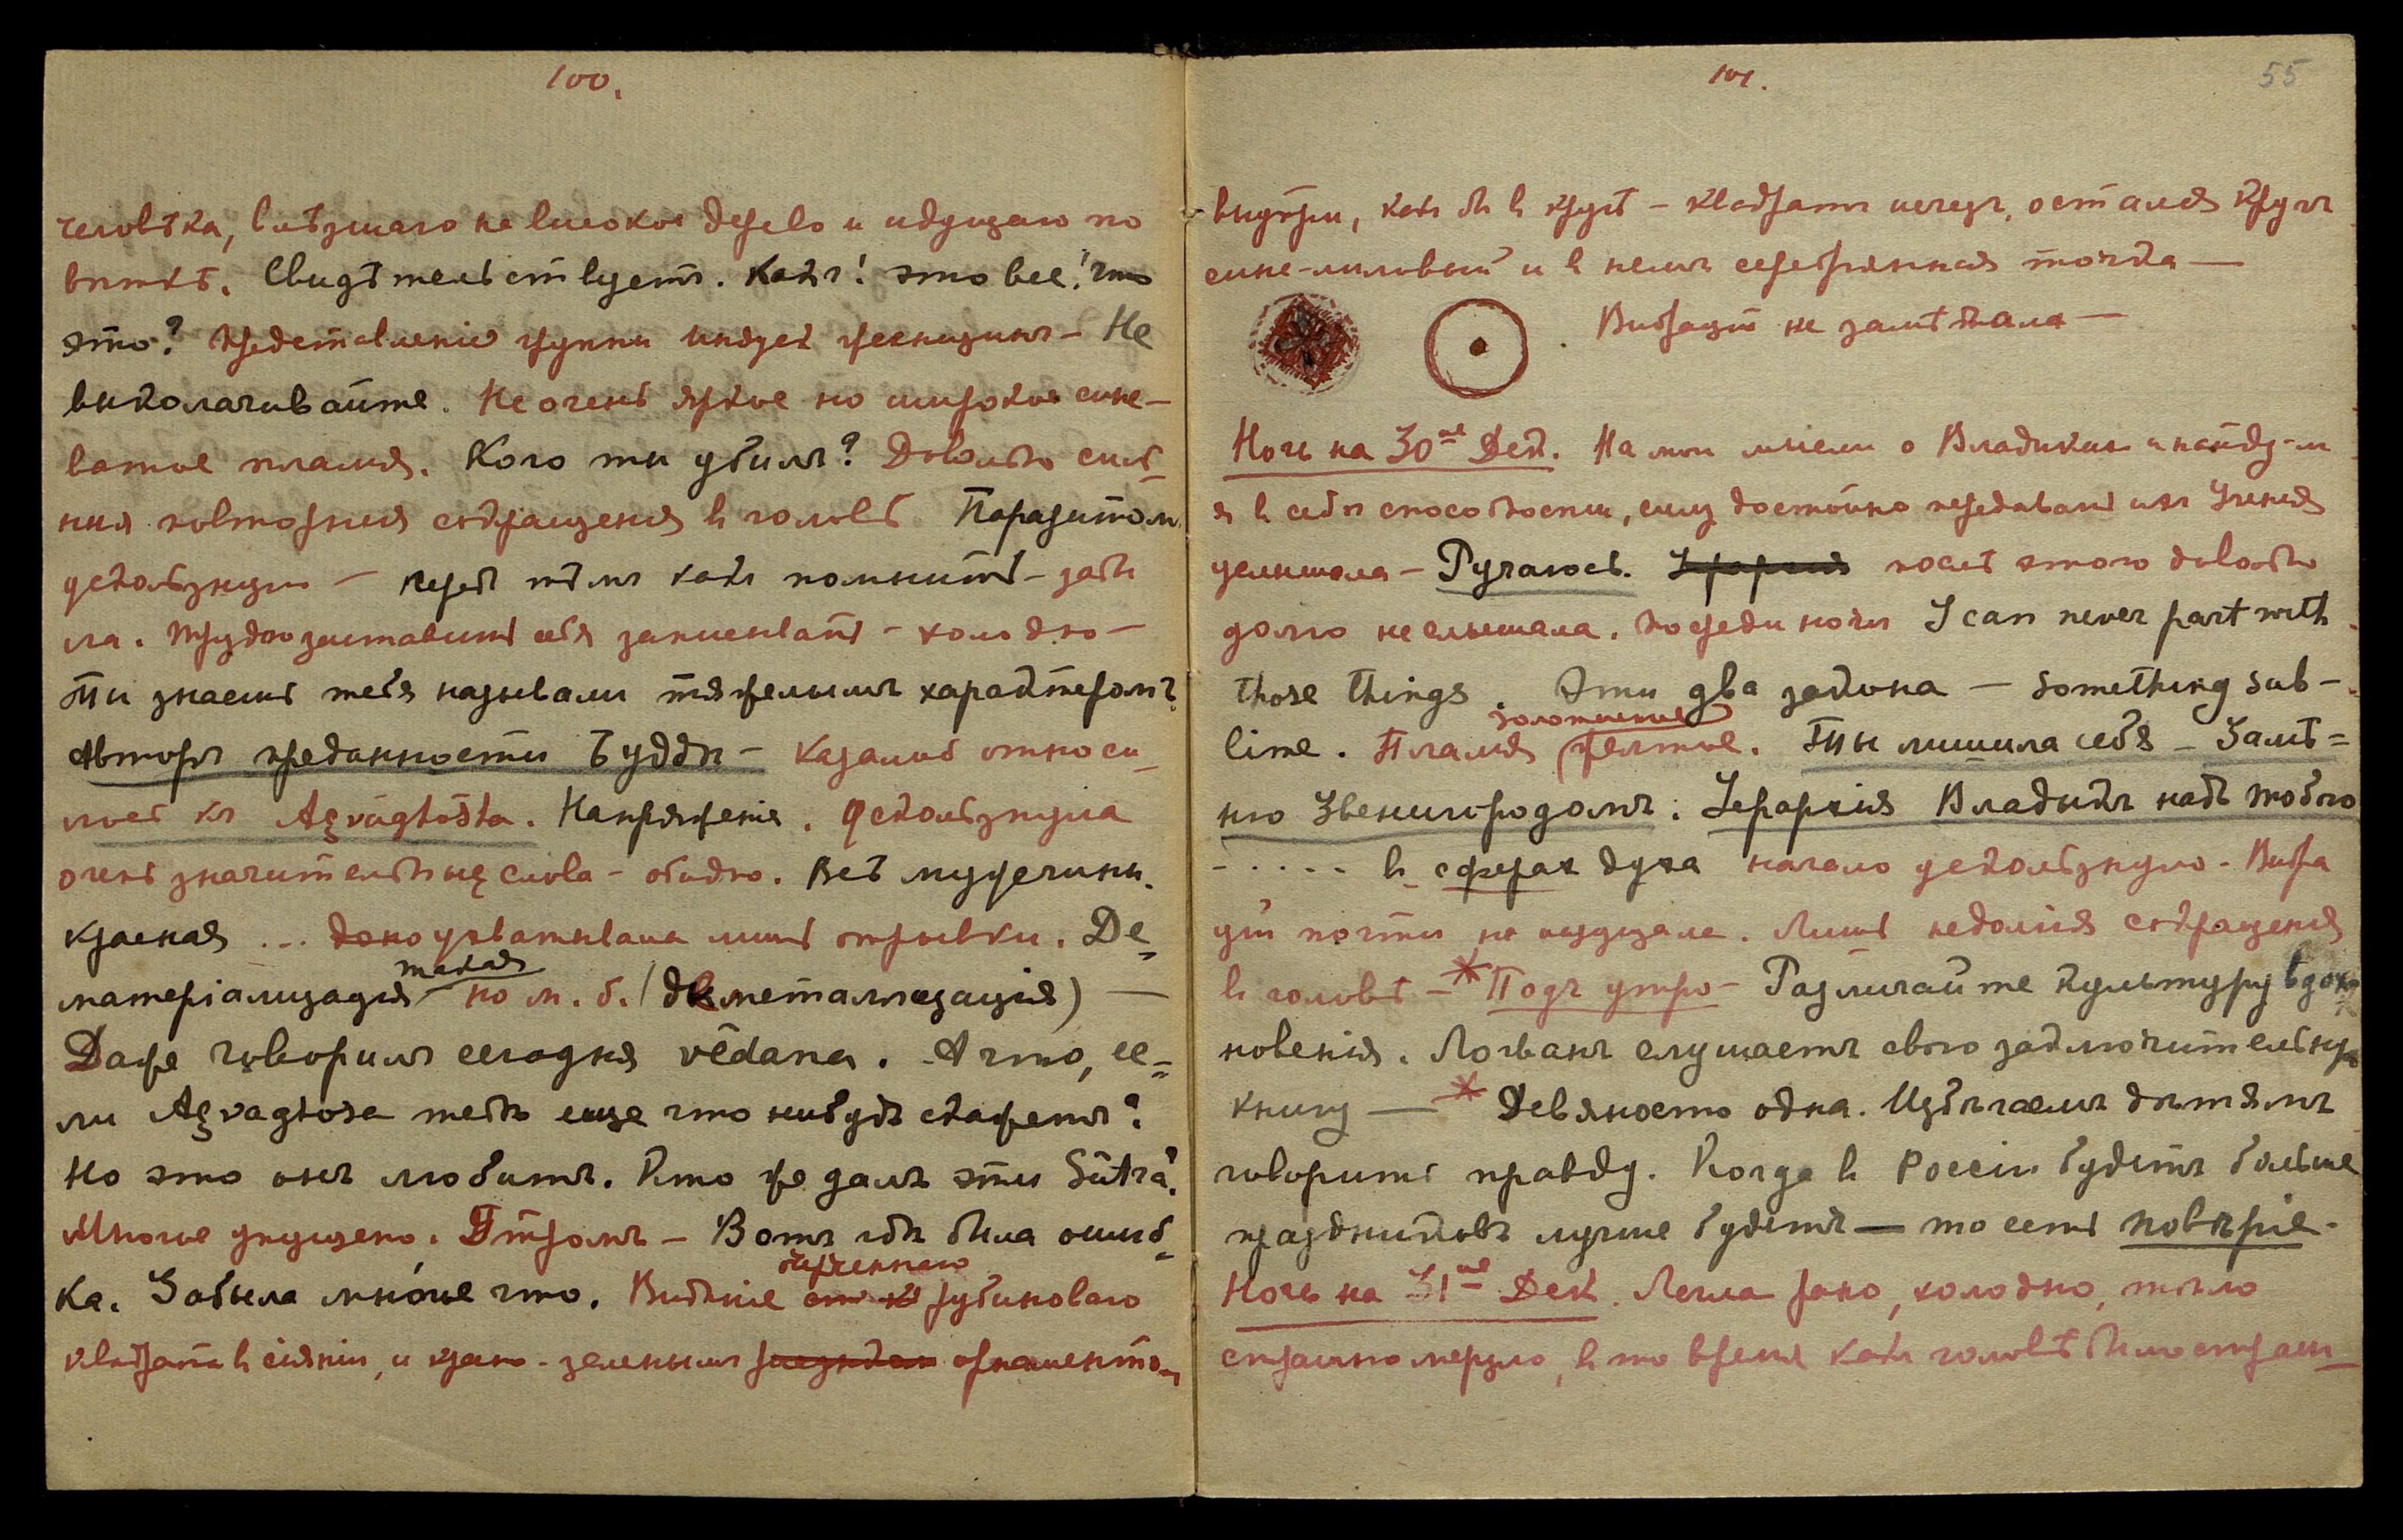 100.
человѣка, влѣзшаго на высокое дерево и идущаго по
вѣткѣ. Свидѣтельствуетъ. Какъ! это все! что
это? Представленіе группы индусъ женщинъ – Не
выколачивайте. Не очень яркое но широкое сине-
ватое пламя. Кого ты убилъ? Довольно силь-
ныя повторныя сокращенія в головѣ Паразитом
ускользнуло — передъ тѣмъ какъ помнить – забы
ла. Трудно заставить себя записывать – холодно –
Ты знаешь тебя называли тяжелымъ характеромъ?
Авторъ преданности Будды – казалось относи
лось къ Açvaghosha. Напряженіе. Ускользнула
очень значительные слова – обидно. Всѣ мужчины.
красная ... ухватывала лишь отрывки. Де=
матеріализація такая но м. б. (деметаллизація) —
Даже говорилъ сегодня vêdana. А что, ес=
ли Açvaghosa тебѣ еще что нибудь скажетъ?
Но это онъ любитъ. Кто же далъ эти Sûtra?
Многое упущено. Утромъ – Вотъ гдѣ была ошиб=
ка. Забыла многое что. Видѣніе рубиноваго
квадрата в сіяніи, и красно-зеленымъ орнаментом
101.
55
внутри, какъ бы в кругѣ – квадратъ исчезъ, остался кругъ
сине-лиловый и в немъ серебрянная точка —
Вибрацій не замѣчала —
Ночь на 30ое Дек. На мои мысли о Владыкахъ и найду-ли
я в себѣ способности, силу достойно передавать ихъ Ученія
услышала – Ручаюсь. Іерархія послѣ этого довольно
долго не слышала. Посреди ночи I can never part with
those things. Эти два закона — Something sub-
lime. Пламя золотистое (желтое. Ты лишила себя – Замѣ=
ню Звенигородомъ. Іерархія Владыкъ надъ тобою
- . . . . в сферах духа начало ускользнуло – Вибра
цій почти не ощущала. Лишь недолгія сокращенія
в головѣ – * Подъ утро – Различайте культуру вдох
новенія. Логванъ слушаетъ свою заключительную
книгу — * Девяносто одна. Избѣгаемъ дѣтямъ
говорить правду. Когда в Россіи будетъ больше
праздниковъ лучше будетъ — то есть повѣріе.
Ночь на 31ое Дек. Легла рано, холодно, тѣло
страшно мерзло, в то время какъ головѣ было страш